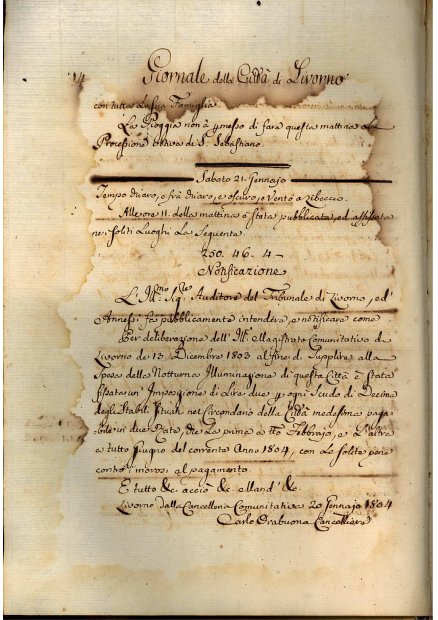 14 Giornale della Città di Livorno
con tutta la sua Famiglia.
La Pioggia non à pmesso di fare questa mattina la
Processione votiva di S. Sebastiano.
Sabato 21. Gennajo
Tempo chiaro, e frà chiaro, e oscuro, e Vento a Libeccio.
Alle ore 11. della mattina è stata pubblicata, ed affissata
ne' soliti Luoghi La Seguente.
250. 46. 4 —
Notificazione
L'Illmo. Sig. Auditore del Tribunale di Livorno, ed
Annessi fà pubblicamente intendere, e notificare come
Per deliberazione dell' Magistrato Comunitativo di
Livorno de 13. Dicembre 1803 al fine di Supplire alla
Spesa della Notturna Illuminazione di questa Città è stata
fissata un' Imposizione di Lire due p ogni Scudo di Decima
degli Stabili situati nel Circondario della Città medesima paga-
bile in due Rate, che La prima a tto Febbrajo, e L'altra
a tutto Giugno del corrente Anno 1804, con Le Solite pene
contro i morosi al pagamento
E tutto &c. acciò &c. Mand' &c.
Livorno dalla Cancelleria Comunitativa 20 Gennajo 1804
Carlo Cancelliere